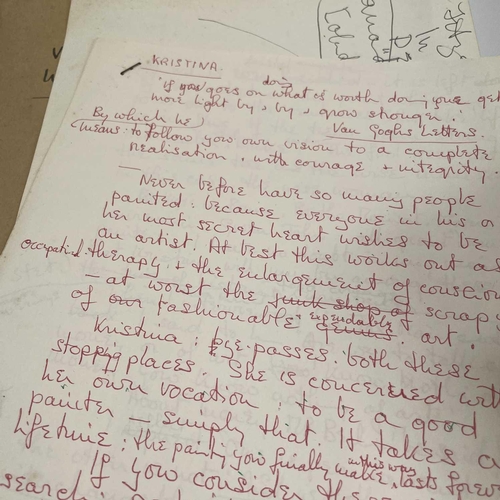 KRISTINA.
doing
'if you goes on what is worth doing one get
more light by, by, grow stronger.'
Van Goghs Letters.
By which he
means: to follow you own vision to a complete
realisation, with courage + integrity.
— Never before have so many people
painted: because everyone in his o
her most secret heart wishes to be
an artist. At best this works out as
Occupational therapy + the enlargement of conscion
— at worst the junk shop of scrap
of our fashionable + expendable art.
Kristina: bye-passes both these
stopping places. She is concerned wit
her own vocation: to be a good
painter — simply that. It takes a
lifetime: the painting you finally make in this way lasts forev
If you consider
search